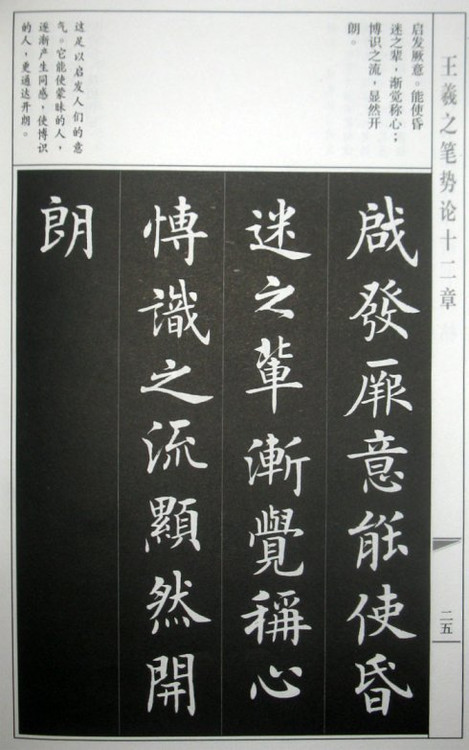 王羲之笔势论十二章
二五
启发厥意。能使昏
迷之辈，渐觉称心；
博识之流，显然开
朗。
这足以启发人们的意
气。它能使蒙昧的人，
逐渐产生同感，使博识
的人，更通达开朗。
啟發厥意能使昏
迷之輩漸覺稱心
愽識之流顯然開
朗